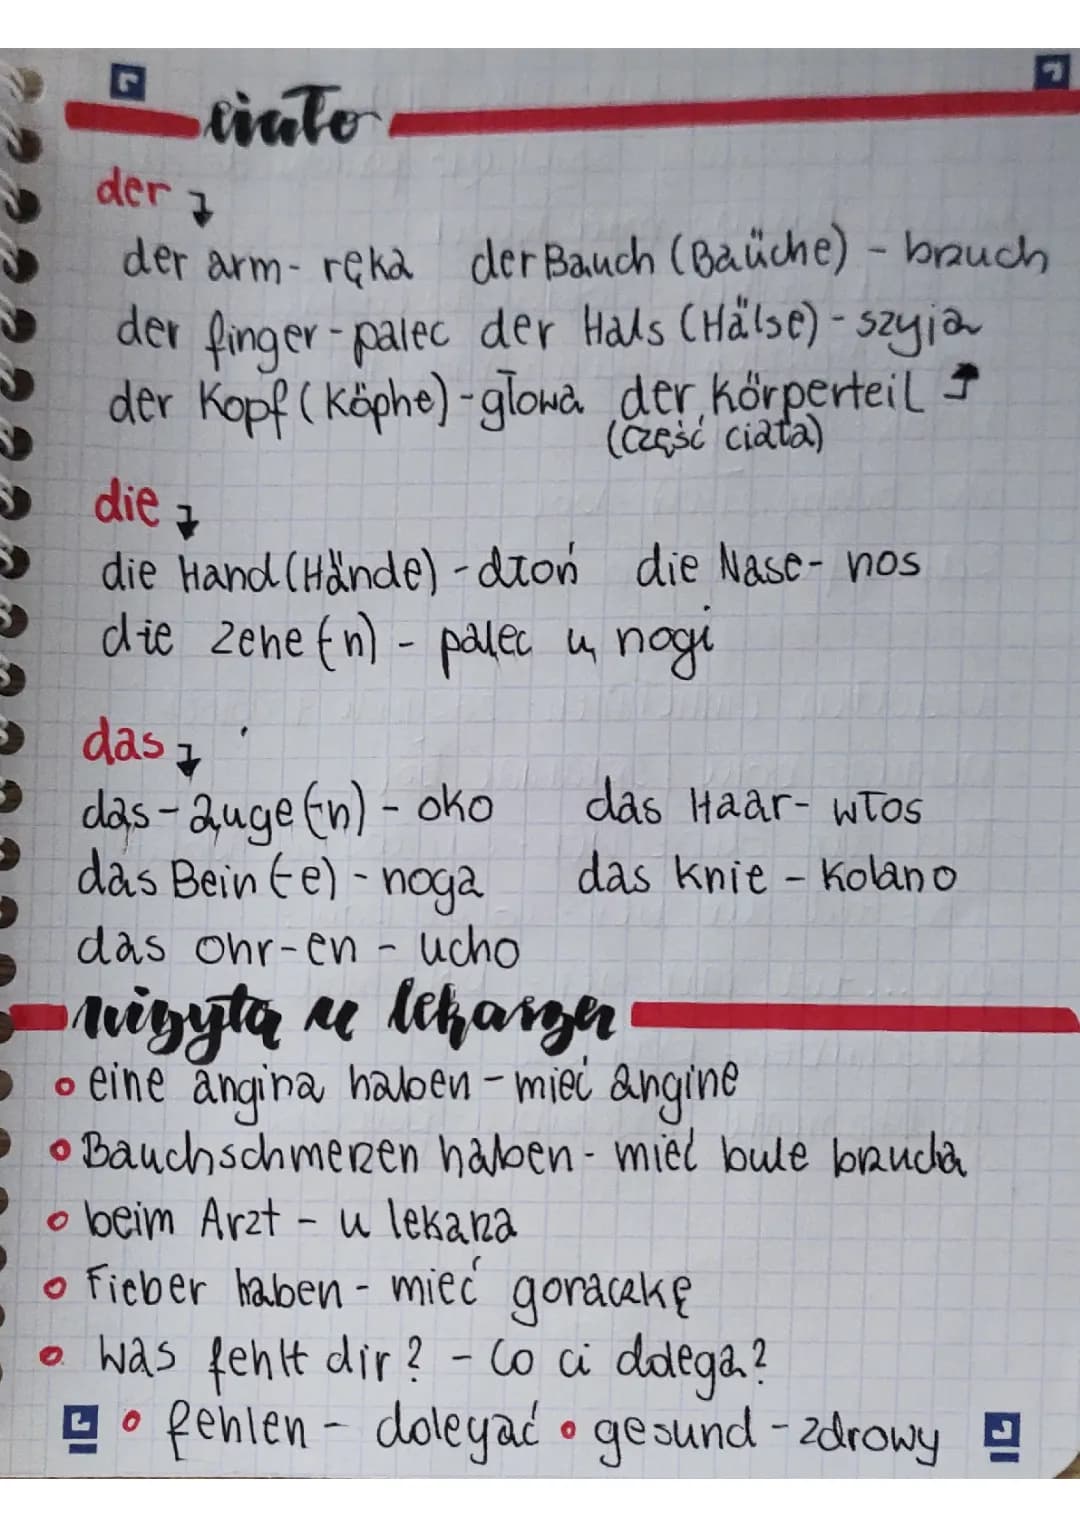 ciało
der
der arm - ręka der Bauch (Baüche) - brzuch
der finger - palec der Hals (Hälse) - szyja
der Kopf (Köphe) - głowa der körperteil
(część ciała)
die
die Hand (Hände) - dłoń die Nase - nos
die Zehe (-n) - palec u nogi
das
das - auge (-n) - oko das Haar - włos
das Bein (-e) - noga das knie - kolano
das Ohr-en - ucho
wizyta u lekarza
eine angina haben - mieć angine
Bauchschmerzen haben - mieć bule brzucha
beim Arzt - u lekarza
Fieber haben - mieć goraczkę
was fehlt dir? - Co ci dolega?
fehlen - dolegać gesund - zdrowy